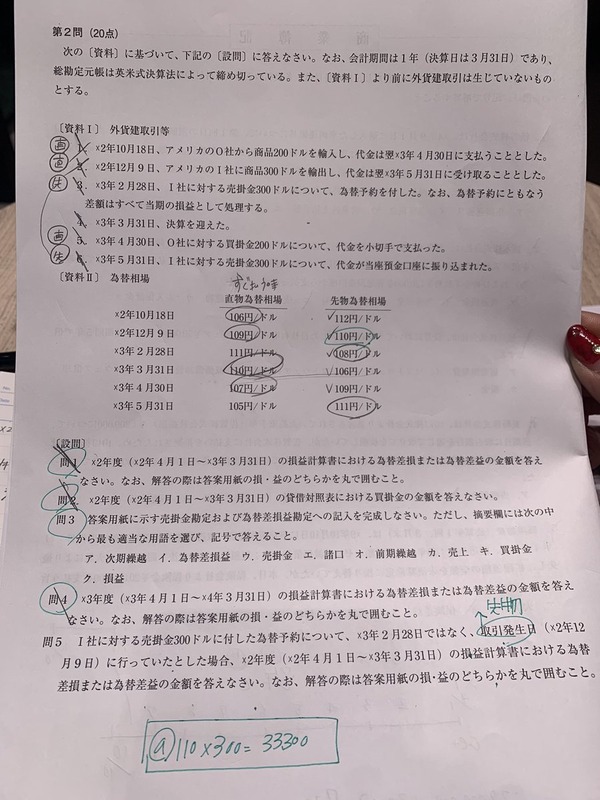 第2問（20点）
次の〔資料〕に基づいて、下記の〔設問〕に答えなさい。なお、会計期間は1年（決算日は3月31日）であり、
総勘定元帳は英米式決算法によって締め切っている。また、〔資料Ⅰ〕より前に外貨建取引は生じていないもの
とする。
〔資料Ⅰ〕 外貨建取引等
1. ×2年10月18日、アメリカのO社から商品200ドルを輸入し、代金は翌×3年4月30日に支払うこととした。
直 2. ×2年12月9日、アメリカのI社に商品300ドルを輸出し、代金は翌×3年5月31日に受け取ることとした。
3. ×3年2月28日、I社に対する売掛金300ドルについて、為替予約を付した。なお、為替予約にともなう
差額はすべて当期の損益として処理する。
4. ×3年3月31日、決算を迎えた。
5. ×3年4月30日、O社に対する買掛金200ドルについて、代金を小切手で支払った。
6. ×3年5月31日、I社に対する売掛金300ドルについて、代金が当座預金口座に振り込まれた。
〔資料Ⅱ〕 為替相場
直物為替相場 先物為替相場
×2年10月18日 106円/ドル ✓112円/ドル
×2年12月9日 109円/ドル ✓110円/ドル
×3年2月28日 111円/ドル ✓108円/ドル
×3年3月31日 110円/ドル ✓106円/ドル
×3年4月30日 107円/ドル ✓109円/ドル
×3年5月31日 105円/ドル 111円/ドル
〔設問〕
問1 ×2年度（×2年4月1日～×3年3月31日）の損益計算書における為替差損または為替差益の金額を答え
なさい。なお、解答の際は答案用紙の損・益のどちらかを丸で囲むこと。
問2 ×2年度（×2年4月1日～×3年3月31日）の貸借対照表における買掛金の金額を答えなさい。
問3 答案用紙に示す売掛金勘定および為替差損益勘定への記入を完成しなさい。ただし、摘要欄には次の中
から最も適当な用語を選び、記号で答えること。
ア．次期繰越 イ．為替差損益 ウ．売掛金 エ．諸口 オ．前期繰越 カ．売上 キ．買掛金
ク．損益
問4 ×3年度（×3年4月1日～×4年3月31日）の損益計算書における為替差損または為替差益の金額を答え
なさい。なお、解答の際は答案用紙の損・益のどちらかを丸で囲むこと。
先物
問5 I社に対する売掛金300ドルに付した為替予約について、×3年2月28日ではなく、取引発生日（×2年12
月9日）に行っていたとした場合、×2年度（×2年4月1日～×3年3月31日）の損益計算書における為替
差損または為替差益の金額を答えなさい。なお、解答の際は答案用紙の損・益のどちらかを丸で囲むこと。
@110×300=33300